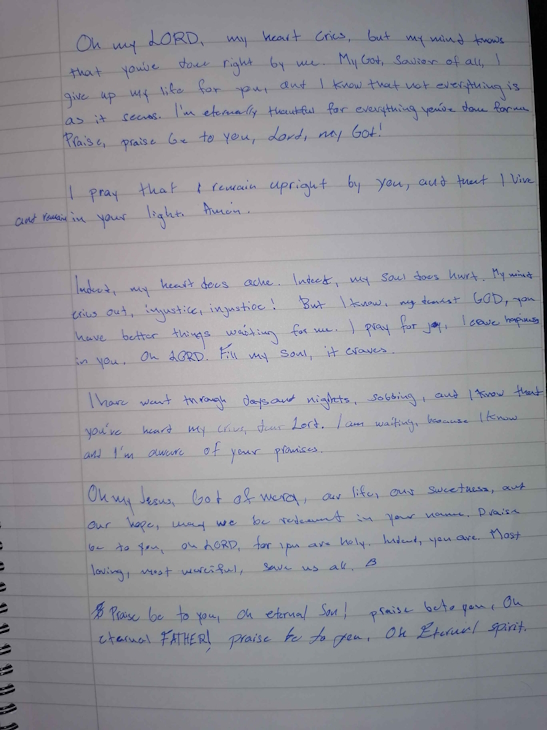 Oh my LORD, my heart cries, but my mind knows
that you've done right by me. My God, Savior of all, I
give up my life for you, and I know that not everything is
as it seems. I'm eternally thankful for everything you've done for me
Praise, praise be to you, Lord, my God!
I pray that I remain upright by you, and that I live
and remain in your light. Amen.
Indeed, my heart does ache. Indeed, my soul does hurt. My mind
cries out, injustice, injustice! But I know, my dearest GOD, you
have better things waiting for me. I pray for joy, I crave happiness
in you, Oh LORD. Fill my soul, it craves.
I have went through days and nights, sobbing, and I know that
you've heard my cries, dear Lord. I am waiting, because I know
and I'm aware of your promises.
Oh my Jesus, God of mercy, our life, our sweetness, and
our hope, may we be redeemed in your name. Praise
be to you, oh LORD, for you are holy. Indeed, you are Most
loving, most merciful, save us all.
Praise be to you, oh eternal Son! praise be to you, Oh
eternal FATHER! praise be to you, Oh Eternal spirit.